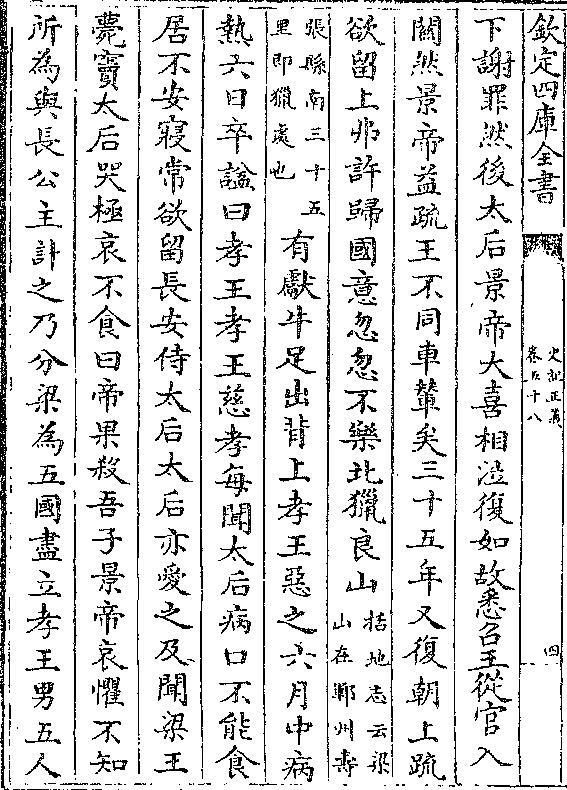 欽定四庫全書
史記正義
卷五十八
四
下謝罪然後太后景帝大喜相泣復如故悉召王從官入
關然景帝益疏王不同車輦矣三十五年又復朝上疏
欲留上弗許歸國意忽忽不樂北獵良山
括地志云梁
山在鄆州壽
張縣南三十五
里即獵處也
有獻牛足出背上孝王惡之六月中病
熱六日卒諡曰孝王孝王慈孝每聞太后病口不能食
居不安寢常欲留長安侍太后太后亦愛之及聞梁王
薨竇太后哭極哀不食曰帝果殺吾子景帝哀懼不知
所為與長公主計之乃分梁為五國盡立孝王男五人